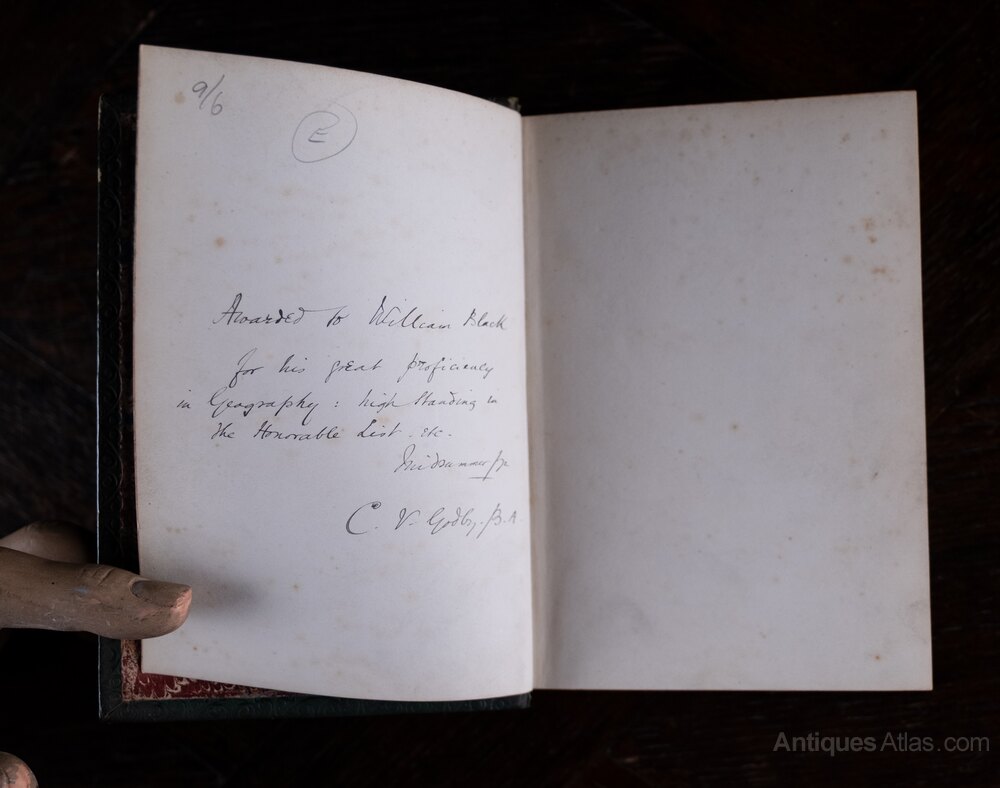 9/6
E
Awarded to William Black
for his great proficiency
in Geography : high standing in
the Honorable List . etc.
Midsummer
C. V. Godby, B.A.
AntiquesAtlas.com